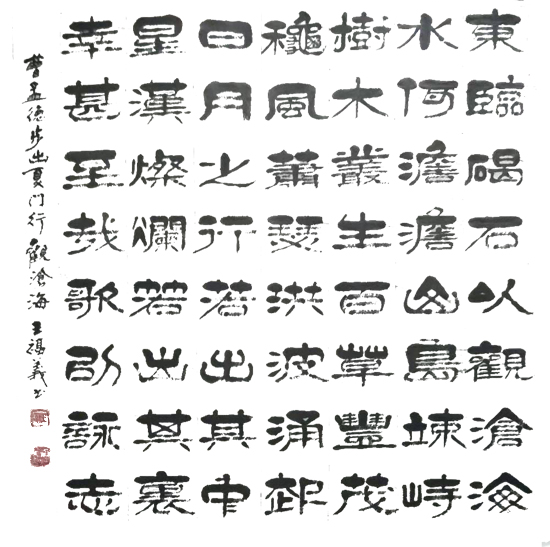 東臨碣石以觀滄海
水何澹澹山島竦峙
樹木叢生百草豐茂
龝風蕭瑟洪波涌起
日月之行若出其中
星漢燦爛若出其裏
幸甚至哉歌以詠志
曹孟德步出夏門行觀滄海王福義書